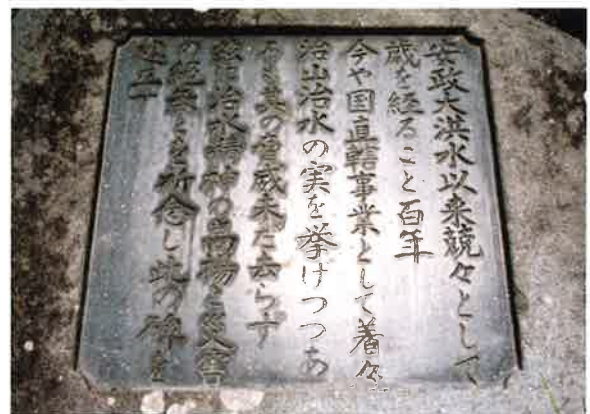 安政大洪水以来競々として
歳を経ること百年
今や国直轄事業として着々
治山治水の実を挙げつつあ
るも其の脅威未だ去らず
茲に治水精神の高揚と災害
の絶無とを祈念し此の碑を
建立す